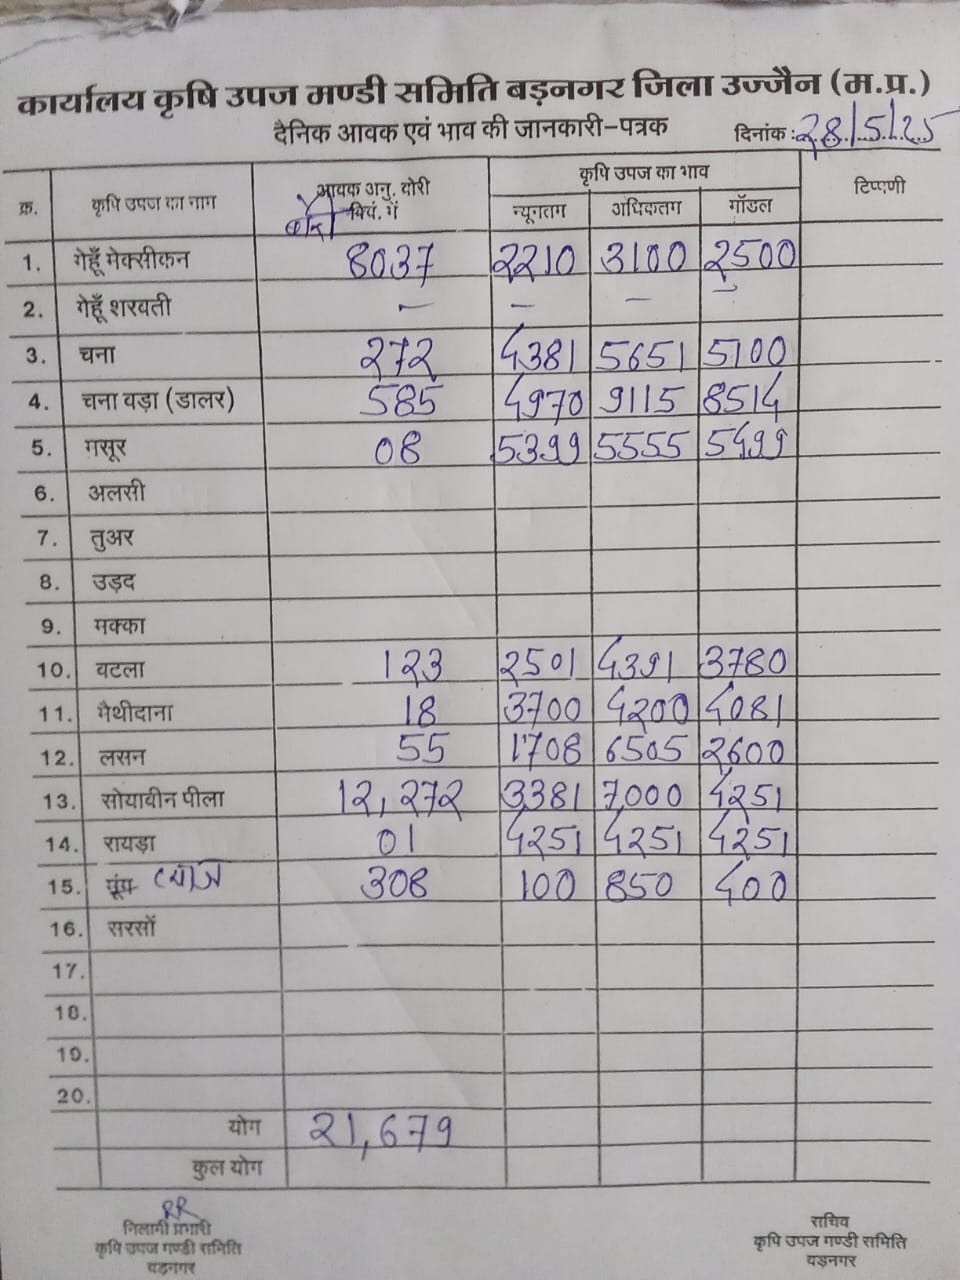 कार्यालय कृषि उपज मण्डी समिति बड़नगर जिला उज्जैन (म.प्र.)
दैनिक आवक एवं भाव की जानकारी-पत्रक
दिनांक : 28/5/25
क्र. कृषि उपज का नाम आवक अनु. बोरी क्विं. में कृषि उपज का भाव टिप्पणी
न्यूनतम अधिकतम मॉडल
1. गेहूँ मेक्सीकन 8037 2210 3100 2500
2. गेहूँ शरबती – – – –
3. चना 272 4381 5651 5100
4. चना बड़ा (डालर) 585 4970 9115 8514
5. मसूर 08 5399 5555 5499
6. अलसी
7. तुअर
8. उड़द
9. मक्का
10. बटला 123 2501 4391 3780
11. मैथीदाना 18 3700 4200 4081
12. लसन 55 1708 6505 2600
13. सोयाबीन पीला 12,272 3381 7,000 4251
14. रायड़ा 01 4251 4251 4251
15. मूंग प्याज 308 100 850 400
16. सरसों
17.
18.
19.
20.
योग 21,679
कुल योग
RR
निलामी प्रभारी
कृषि उपज मण्डी समिति
बड़नगर
सचिव
कृषि उपज मण्डी समिति
बड़नगर